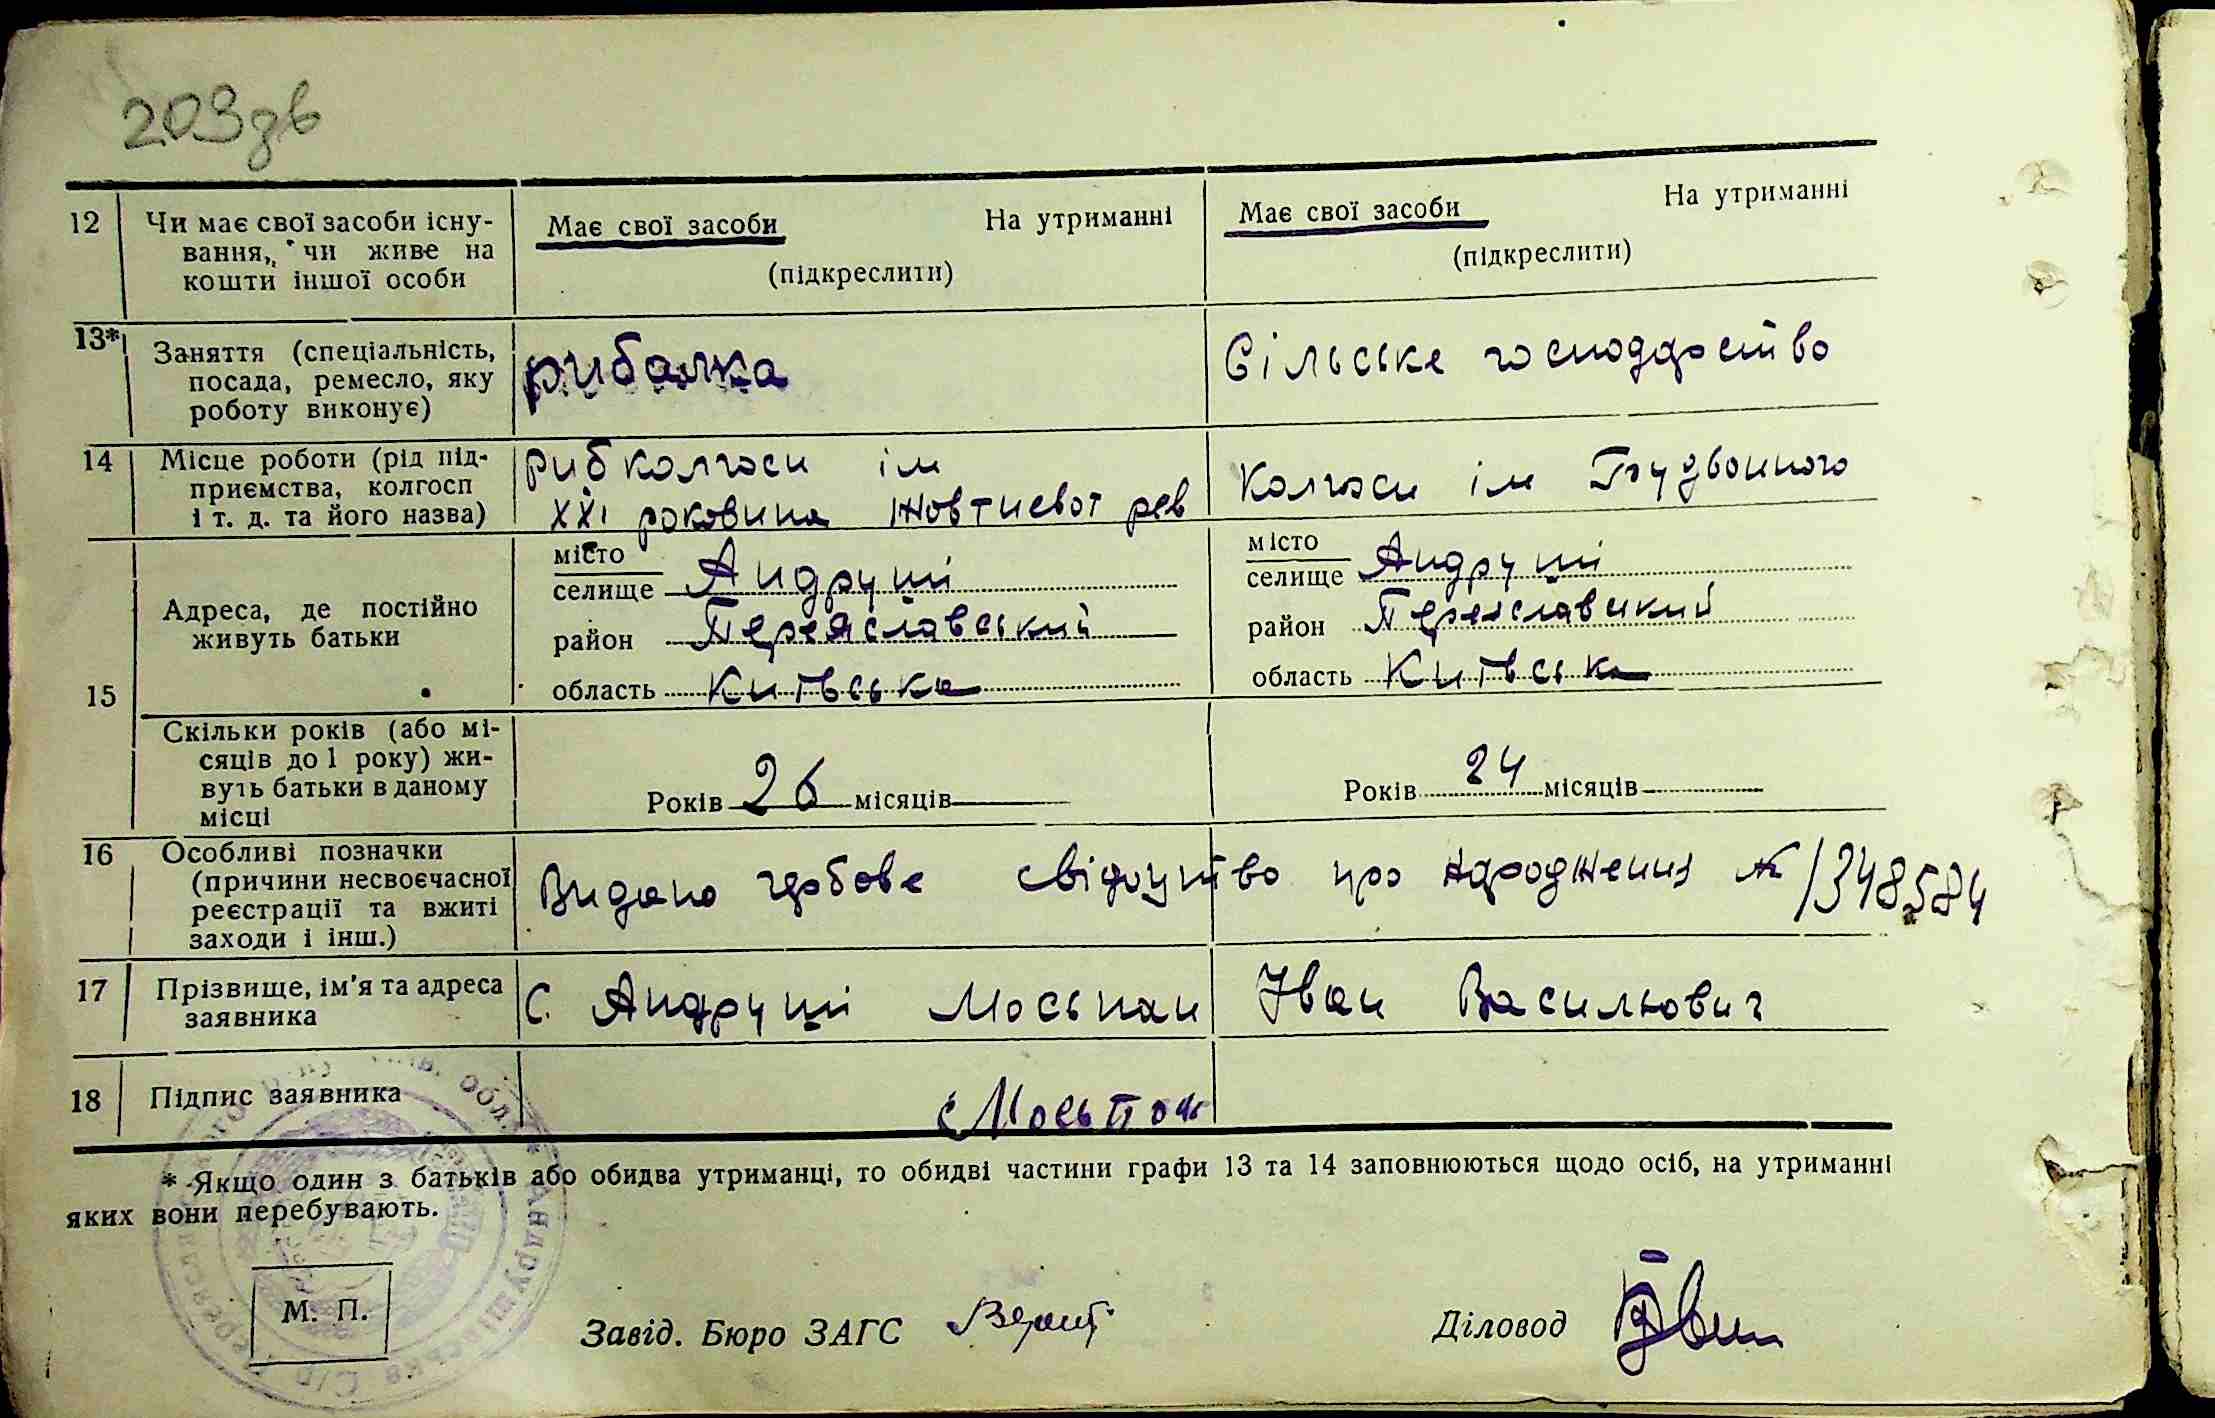 203зв
12 Чи має свої засоби існу-
вання, чи живе на
кошти іншої особи
Має свої засоби На утриманні
(підкреслити)
Має свої засоби На утриманні
(підкреслити)
13* Заняття (спеціальність,
посада, ремесло, яку
роботу виконує)
рибалка
Сільське господарство
14 Місце роботи (рід під-
приємства, колгосп
і т. д. та його назва)
Рибколгосп ім
ХХІ роковина Жовтневої рев
Колгосп ім
15
Адреса, де постійно
живуть батьки
місто
селище Андруші
район Переяславський
область Київська
місто
селище Андруші
район Переяславский
область Київська
Скільки років (або мі-
сяців до 1 року) жи-
вуть батьки в даному
місці
Років 26 місяців
Років 24 місяців
16 Особливі позначки
(причини несвоєчасної
реєстрації та вжиті
заходи і інш.)
Видано гербове свідоцтво про народження № 1348584
17 Прізвище, ім'я та адреса
заявника
С. Андруші Моспан Іван Васильович
18 Підпис заявника
Мосьпан
* Якщо один з батьків або обидва утриманці, то обидві частини графи 13 та 14 заповнюються щодо осіб, на утриманні
яких вони перебувають.
М. П.
Завід. Бюро ЗАГС
Діловод